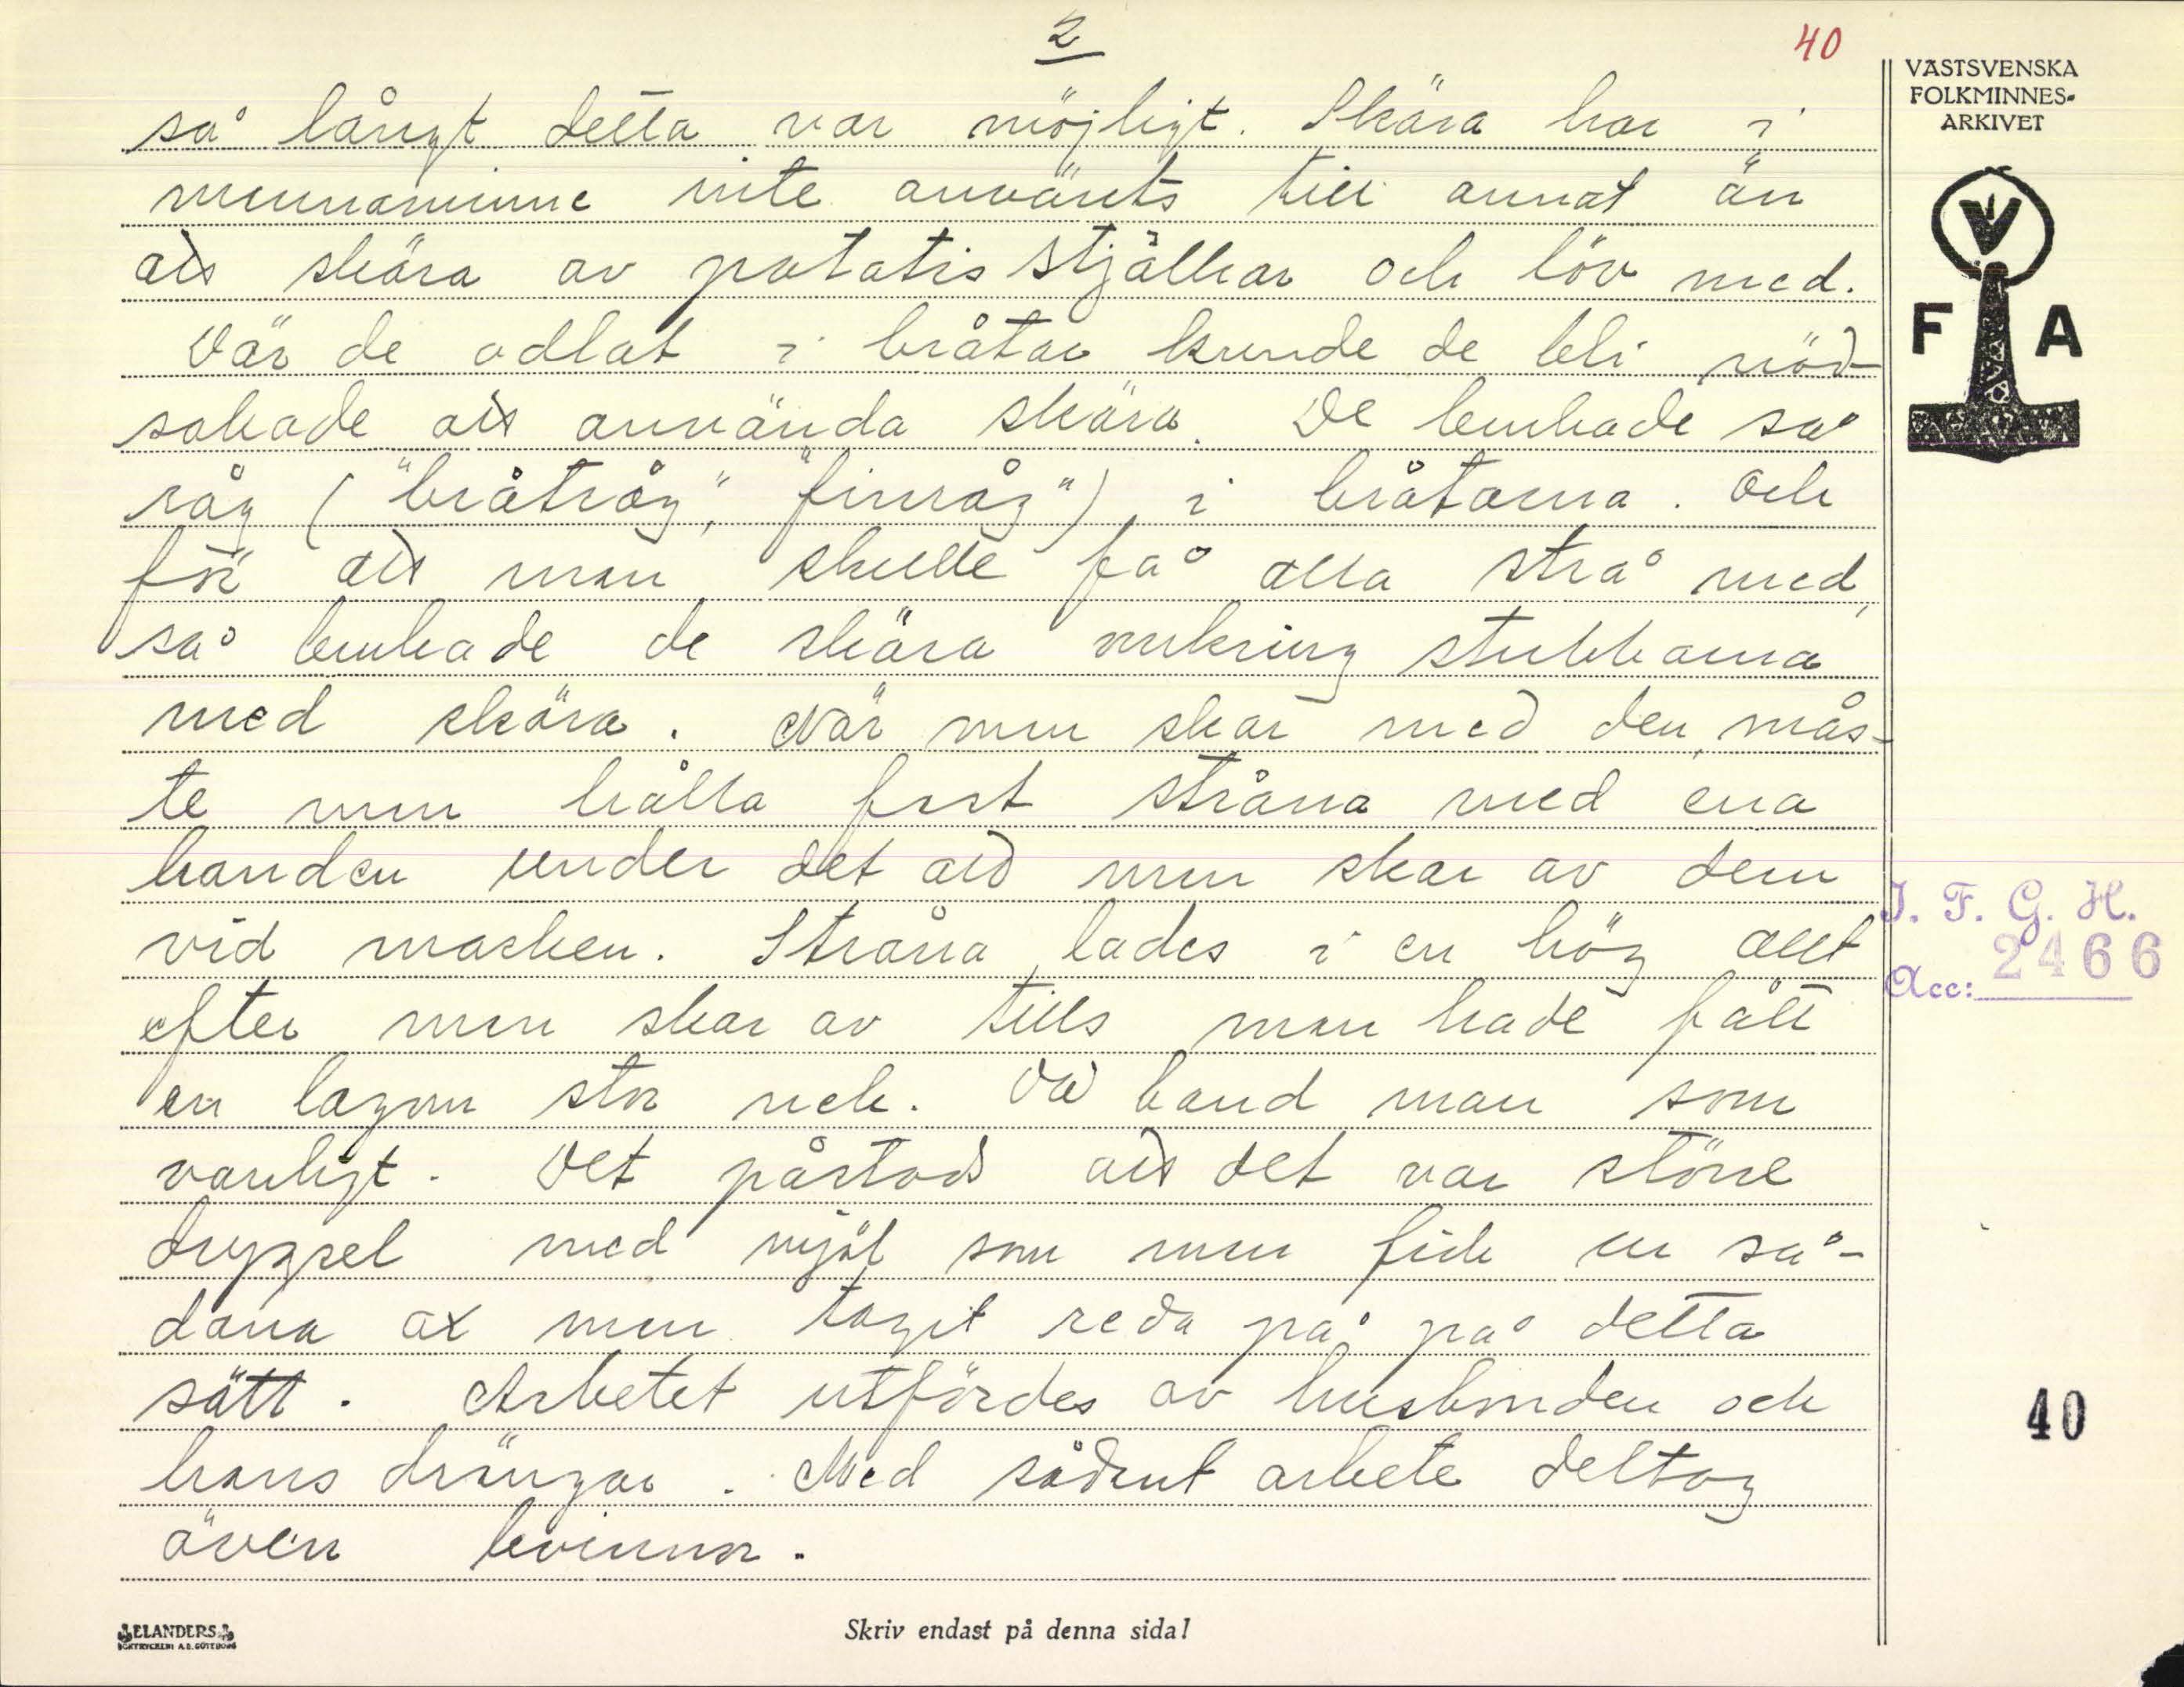 2
40
VÄSTSVENSKA
FOLKMINNES-
ARKIVET
F A
så långt detta var möjligt. Skära har i
mannaminne inte använts till annat än
att skära av potatisstjälkar och löv med.
När de odlat i bråtar kunde de bli nöd-
sakade att använda skära. De brukade så
råg ("bråtråg", "finråg") i bråtarna. Och
för att man skulle få alla strå med,
så brukade de skära omkring stubbarna
med skära. När man skar med den, mås-
te man hålla fast stråna med ena
handen under det att man skar av dem
vid marken. Stråna lades i en hög allt
efter man skar av tills man hade fått
en lagom stor nek. Då band man som
vanligt. Det påstods att det var större
drygsel med mjöl som man fick ur så-
dana ax man tagit reda på, på detta
sätt. Arbetet utfördes av husbonden och
hans drängar. Med sådant arbete deltog
även kvinnor.
I. F. G. H.
Acc: 2466
40
ELANDERS
BOKTRYCKERI A.B. GÖTEBORG
Skriv endast på denna sida!